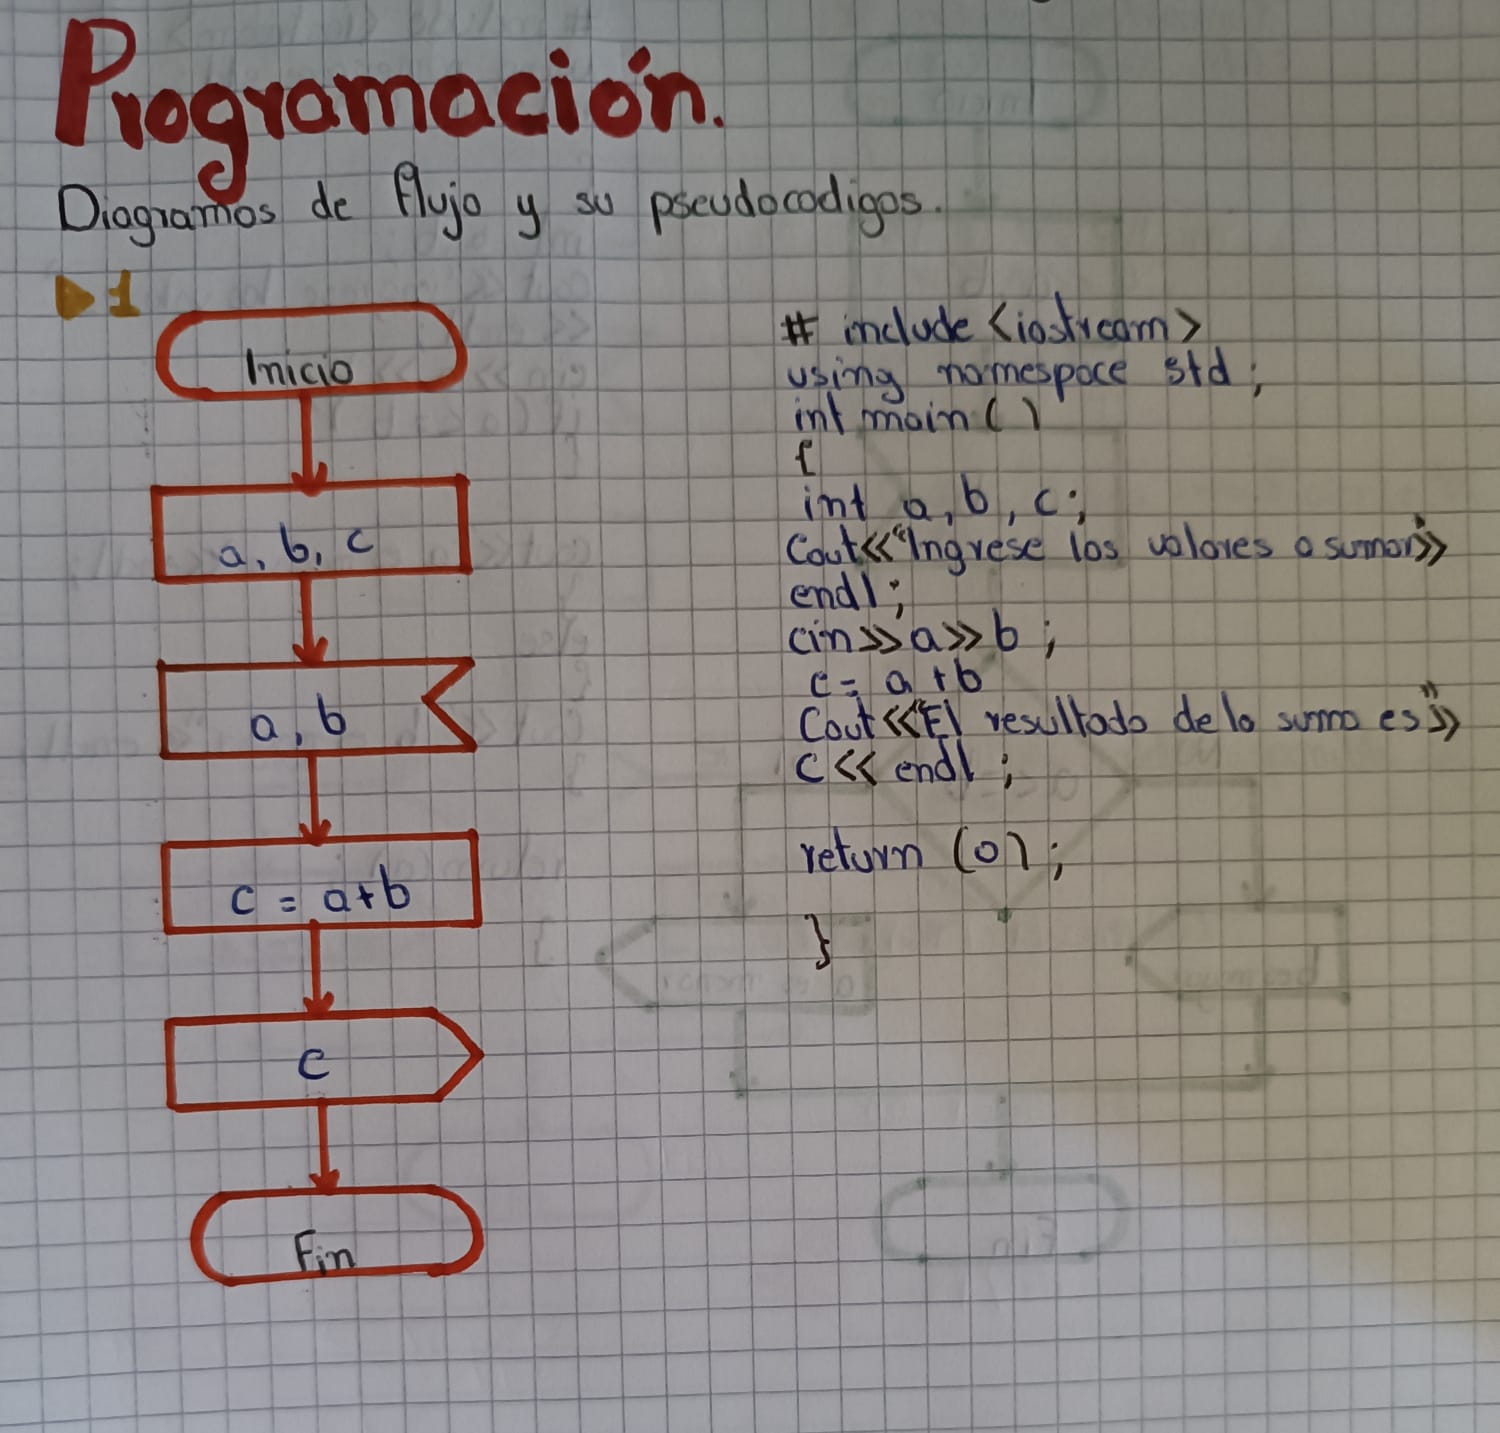 Programación.
Diagramas de flujo y su pseudocodigos.
1
Inicio
a, b, c
a, b
c = a+b
c
Fin
# include <iostream>
using namespace std;
int main()
{
int a, b, c;
Cout<<"Ingrese los valores a sumar">>
endl;
cin>>a>>b;
c= a+b
Cout<<"El resultado de la suma es">>
C<< endl;
return (0);
}